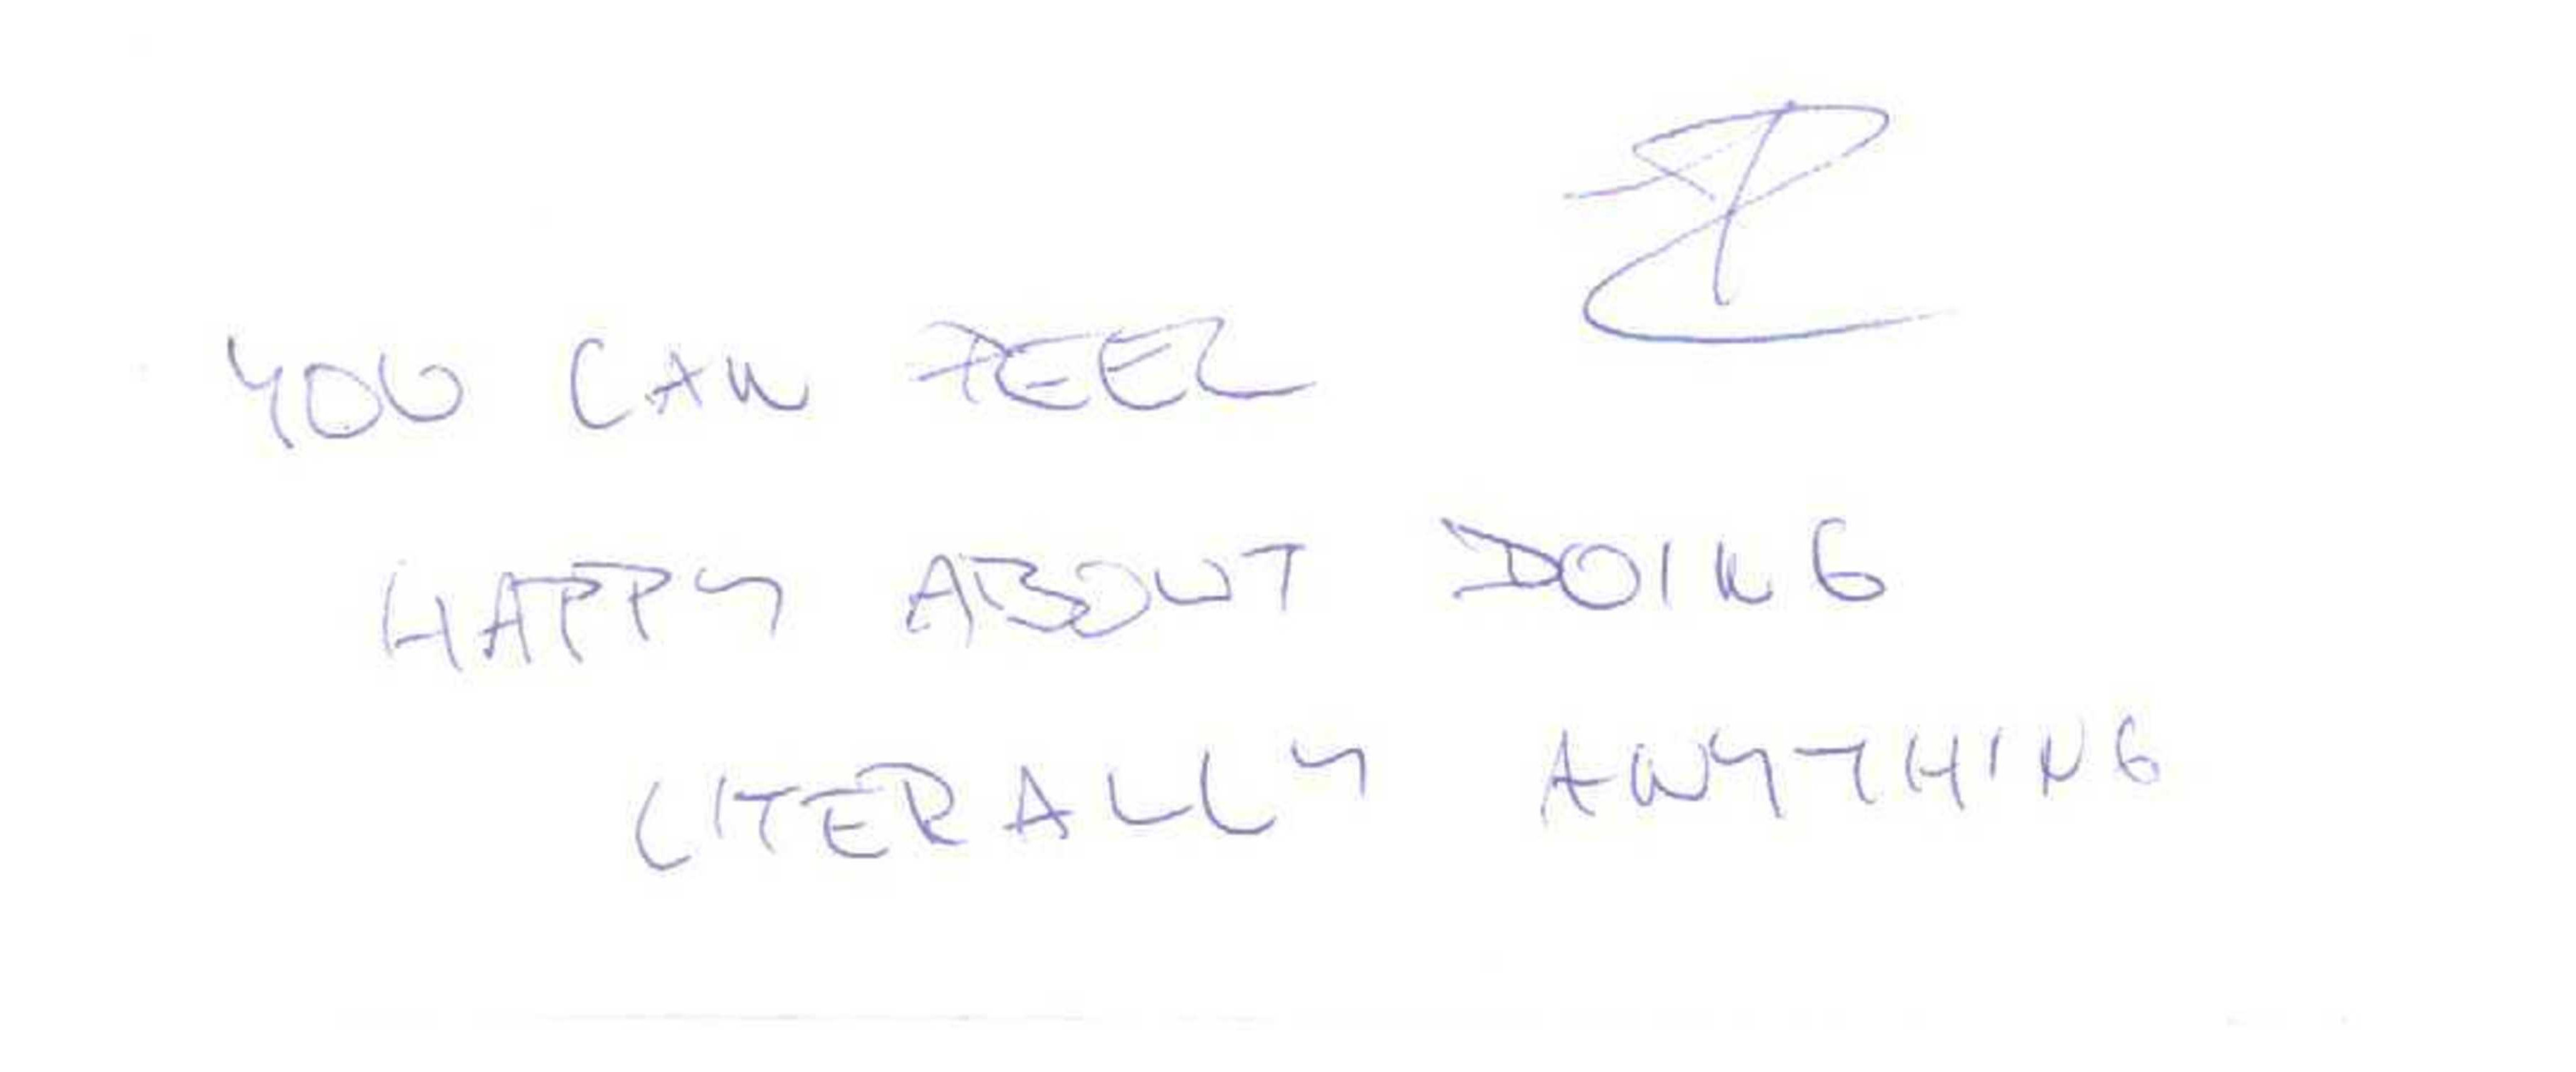 YOU CAN FEEL
HAPPY ABOUT DOING
LITERALLY ANYTHING